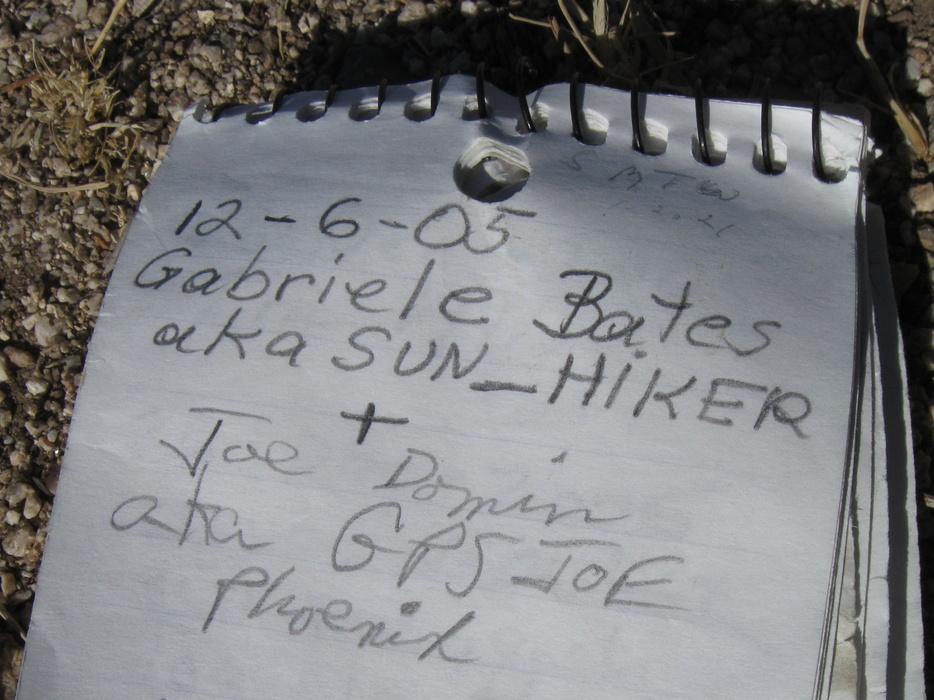 12-6-05
Gabriele Bates
aka SUN_HiKER
+
Joe Domin
aka GPS JOE
Phoenix